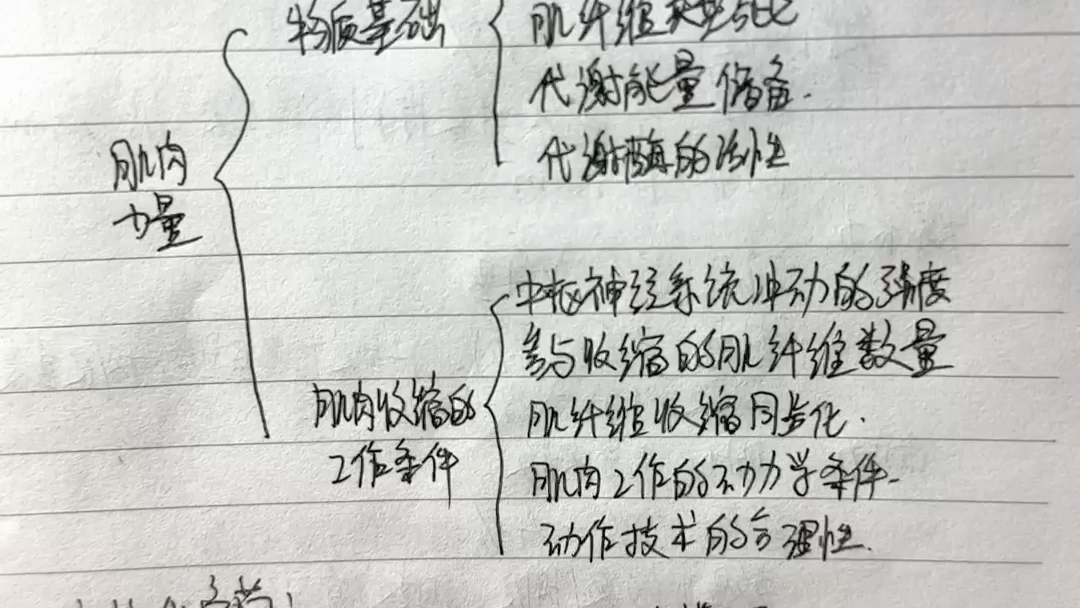 物质基础
肌纤维类型占比
代谢能量储备.
代谢酶的活性
肌肉
力量
中枢神经系统冲动的强度
参与收缩的肌纤维数量
肌肉收缩的
工作条件
肌纤维收缩同步化.
肌肉工作的动力学条件.
动作技术的合理性.